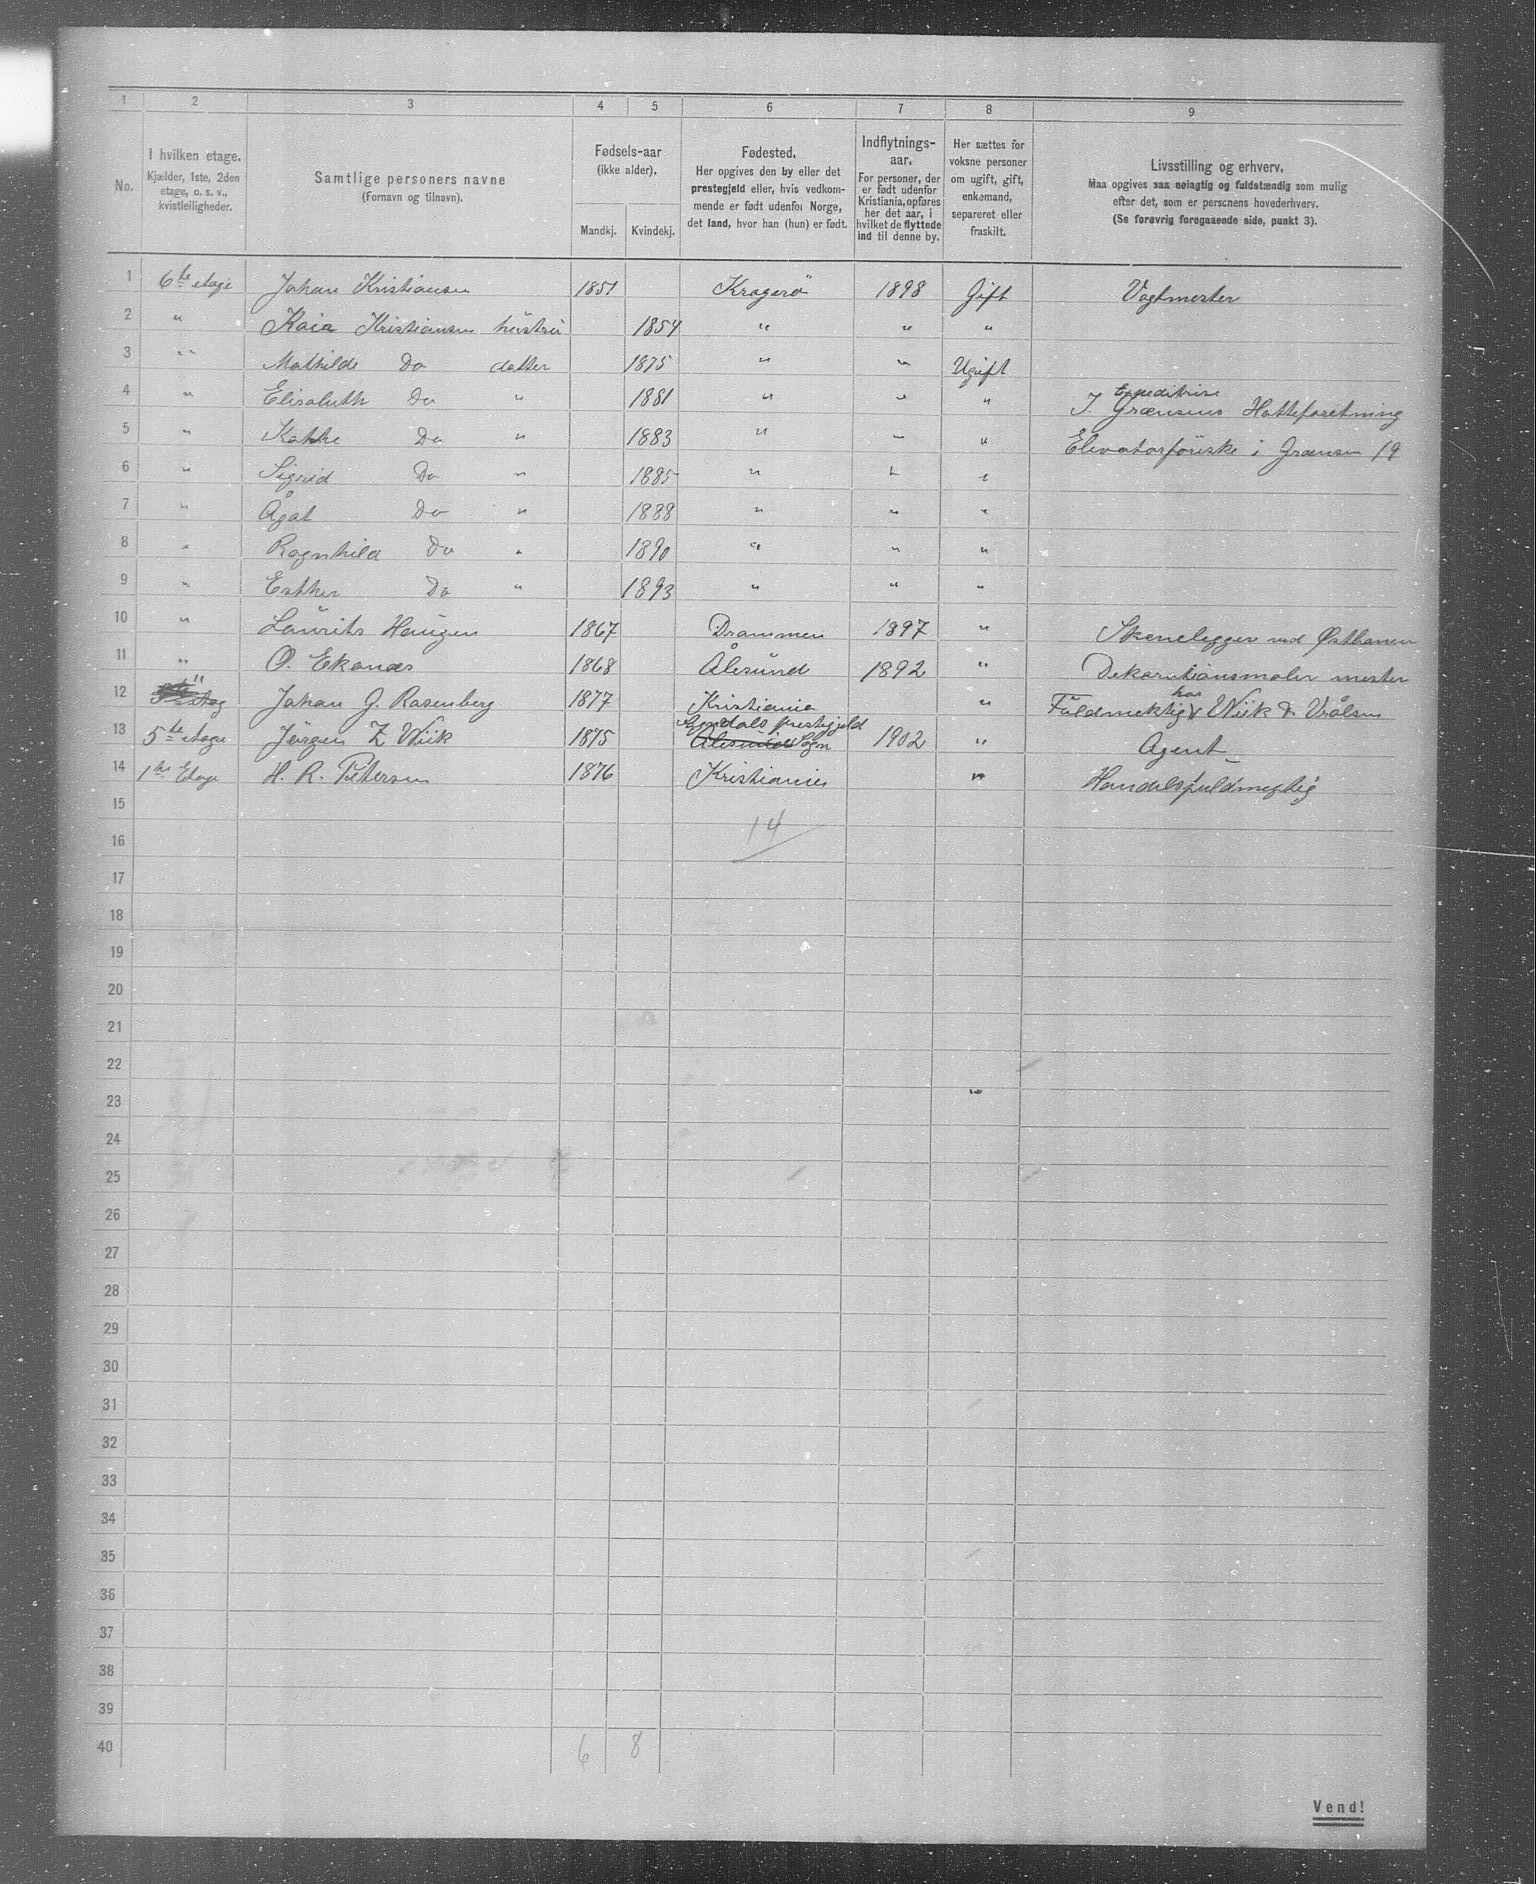 1 2 3 4 5 6 7 8 9
No.
I hvilken etage.
Kjælder, 1ste, 2den
etage, o. s. v.,
kvistleiligheder.
Samtlige personers navne
(Fornavn og tilnavn).
Fødsels-aar
(ikke alder).
Mandkj. Kvindekj.
Fødested.
Her opgives den by eller det
prestegjeld eller, hvis vedkom-
mende er født udenfor Norge,
det land, hvor han (hun) er født.
Indflytnings-
aar.
For personer, der
er født udenfor
Kristiania, opføres
her det aar, i
hvilket de flyttede
ind til denne by.
Her sættes for
voksne personer
om ugift, gift,
enkemand,
separeret eller
fraskilt.
Livsstilling og erhverv.
Maa opgives saa nøiagtig og fuldstændig som mulig
efter det, som er personens hovederhverv.
(Se forøvrig foregaaende side, punkt 3).
1 6te etage Johan Kristiansen 1851 Kragerö 1898 Gift Vagtmester
2 " Kaia Kristiansen hüstrü 1854 " " "
3 " Mathilde Do datter 1875 " " Ugift
4 " Elisabeth Do " 1881 " " " Expeditrise
I. Grænsens Hatteforetning
5 " Do " 1883 " " " Elevatorföriske i Grænsen 19
6 " Sigrid Do " 1885 " " "
7 " Ågat Do " 1888 " " "
8 " Ragnhild Do " 1890 " " "
9 " Esther Do " 1893 " " "
10 " Laürits Haügen 1867 Drammen 1897 " Skenelegger ved Østbanen
11 " O. Ekanæs 1868 Ålesünd 1892 " Dekorationsmaler mester
12 " Johan G. Rosenberg 1877 Kristiania " Füldmektig hos Wiik & Vrålsen
13 5te etage Jörgen Z Wiik 1875 prestegjeld
Ålesünd Sogn 1902 " Agent
14 1te Etage H. R. Petersen 1876 Kristiania " Handelsfuldmegtig
15
14
16
17
18
19
20
21
22
23 "
24
25
26
27
28
29
30
31
32
33
34
35
36
37
38
39
40 6 8
Vend!